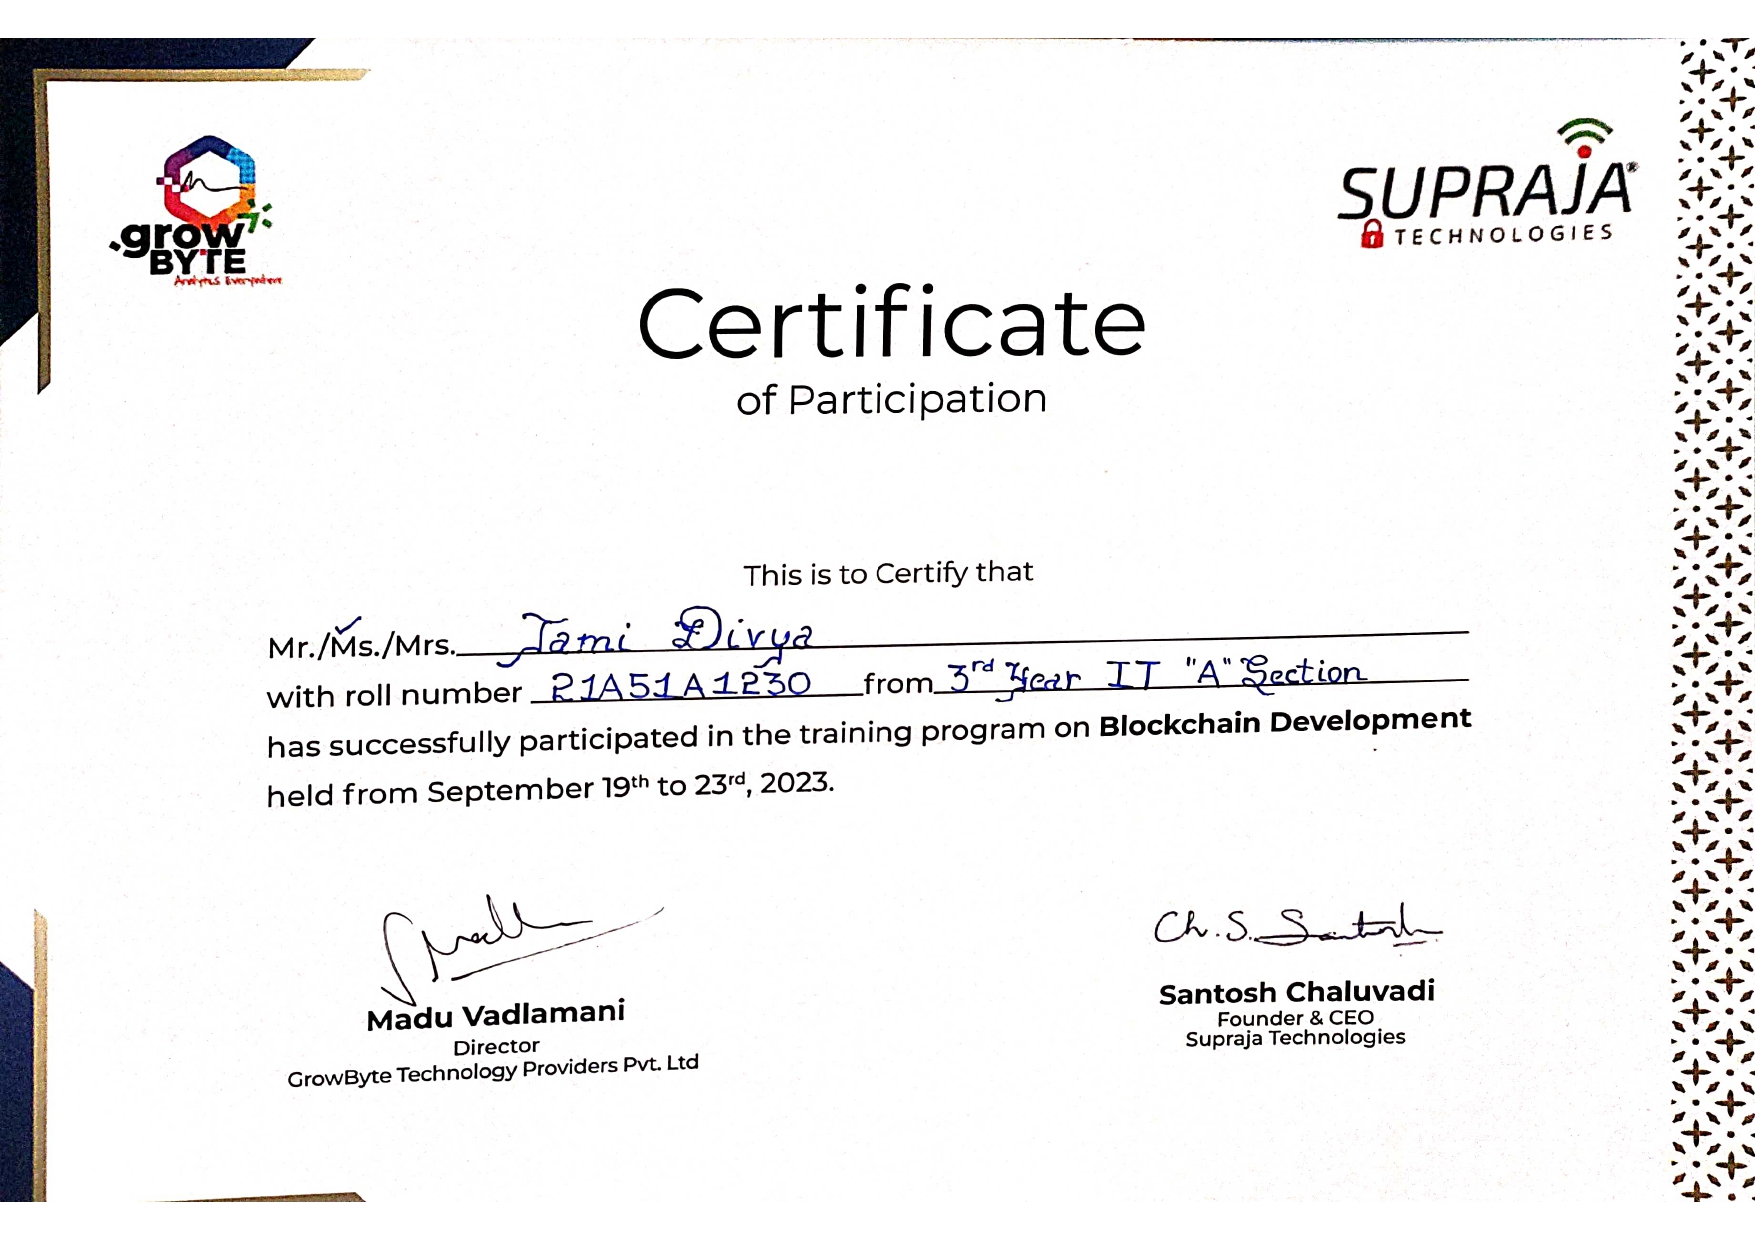 .grow
BYTE
Analytics Everywhere
SUPRAJA®
TECHNOLOGIES
Certificate
of Participation
This is to Certify that
Mr./Ms./Mrs. Tami Divya
with roll number 21A51A1230 from 3rd Year IT "A" Section
has successfully participated in the training program on Blockchain Development
held from September 19th to 23rd, 2023.
Ch. S. Santosh
Madu Vadlamani
Director
GrowByte Technology Providers Pvt. Ltd
Santosh Chaluvadi
Founder & CEO
Supraja Technologies